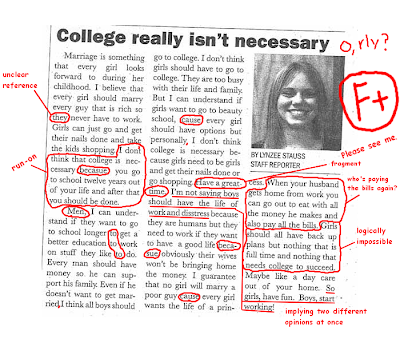 College really isn't necessary
o, rly?
unclear
reference
run-on
Marriage is something
that every girl looks
forward to during her
childhood. I believe that
every girl should marry
every guy that is rich so
they never have to work.
Girls can just go and get
their nails done and take
the kids shopping. I don't
think that college is nec-
cessary becasue you go
to school twelve years out
of your life and after that
you should be done.
Men, I can under-
stand if they want to go
to school longer to get a
better education to work
on stuff they like to do.
Every man should have
money so he can sup-
port his family. Even if he
doesn't want to get mar-
ried, I think all boys should
go to college. I don't think
girls should have to go to
college. They are too busy
with their life and family.
But I can understand if
girls want to go to beauty
school, cause every girl
should have options but
personally, I don't think
college is necessary be-
cause girls need to be girls
and get their nails done or
go shopping. Have a great
time. I'm not saying boys
should have the life of
work and disstress because
they are humans but they
need to work if they want
to have a good life beca-
sue obviously their wives
won't be bringing home
the money. I guarantee
that no girl will marry a
poor guy cause every girl
wants the life of a prin-
F+
BY LYNZEE STAUSS
STAFF REPORTER
Please see me.
fragment
cess. When your husband
gets home from work you
can go out to eat with all
the money he makes and
also pay all the bills. Girls
should all have back up
plans but nothing that is
full time and nothing that
needs college to succeed.
Maybe like a day care
out of your home. So
girls, have fun. Boys, start
working!
who's paying
the bills again?
logically
impossible
implying two different
opinions at once